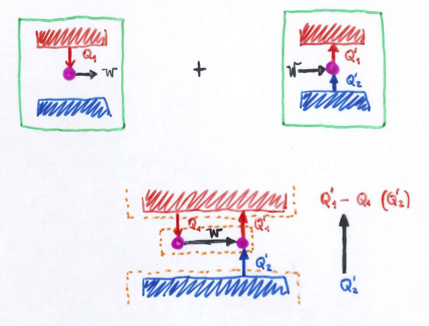 Q₁
W
+
W
Q'₁
Q'₂
Q₁
W
Q'₁
Q'₂
Q'₁ - Q₁ (Q'₂)
Q'₂